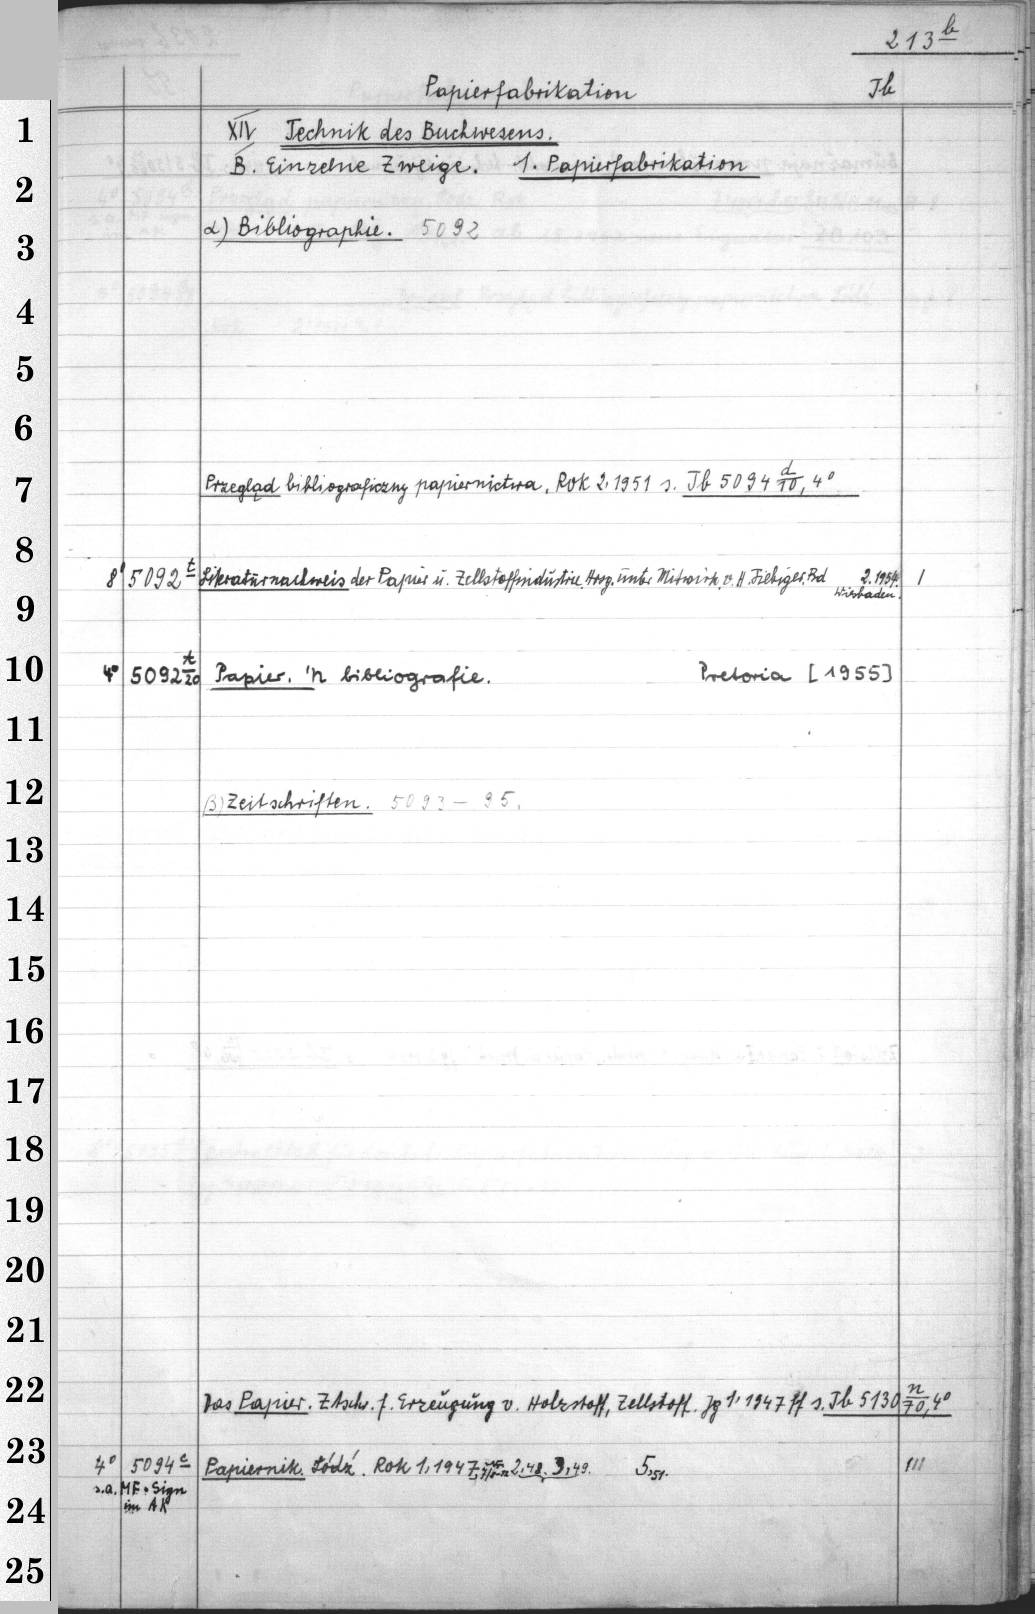 213 b
Papierfabrikation Jb
1 XIV Technik des Buchwesens.
2 B. Einzelne Zweige. 1. Papierfabrikation
3 α) Bibliographie. 5092
4
5
6
7 Przegląd bibliograficzny papiernictwa. Rok 2, 1951 s. Jb 5094 d/10, 4°
8
8° 5092 t Literaturnachweis der Papier u. Zellstoffindustrie. Hrsg. unter Mitwirk. v. H. Fiebiger. Bd 2. 1954. 1
9 Wiesbaden.
10 4° 5092 t/20 Papier. 'n bibliografie. Pretoria [1955]
11
12 β) Zeitschriften. 5093 – 95.
13
14
15
16
17
18
19
20
21
22 Das Papier. Ztschr. f. Erzeugung v. Holzstoff, Zellstoff. Jg 1, 1947 ff s. Jb 5130 n/70, 4°
23 4° 5094 c Papiernik. Łódź. Rok 1, 1947, 2, 48. 3, 49. 5, 51. III
s.a. MF-Sign
24 im AK
25